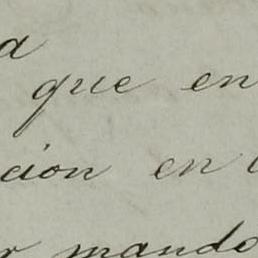 a
que en
cion en
r mando